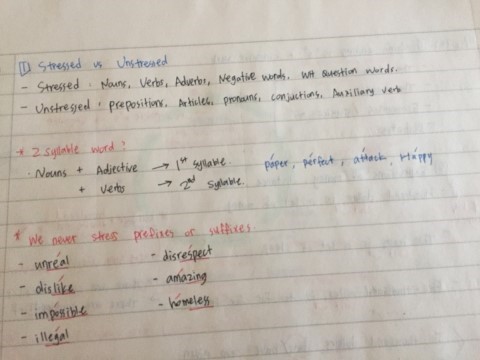 1 Stressed vs Unstressed
- Stressed : Nouns, Verbs, Adverbs, Negative words, WH question words.
- Unstressed : prepositions, Articles, pronouns, conjuctions, Auxillary verb
* 2 syllable word?
· Nouns + Adjective → 1st syllable. páper, pérfect, attáck, Háppy
+ Verbs → 2nd syllable.
* We never stress prefixes or suffixes.
- unréal - disrespéct
- dislíke - amázing
- impóssible - hómeless
- illégal